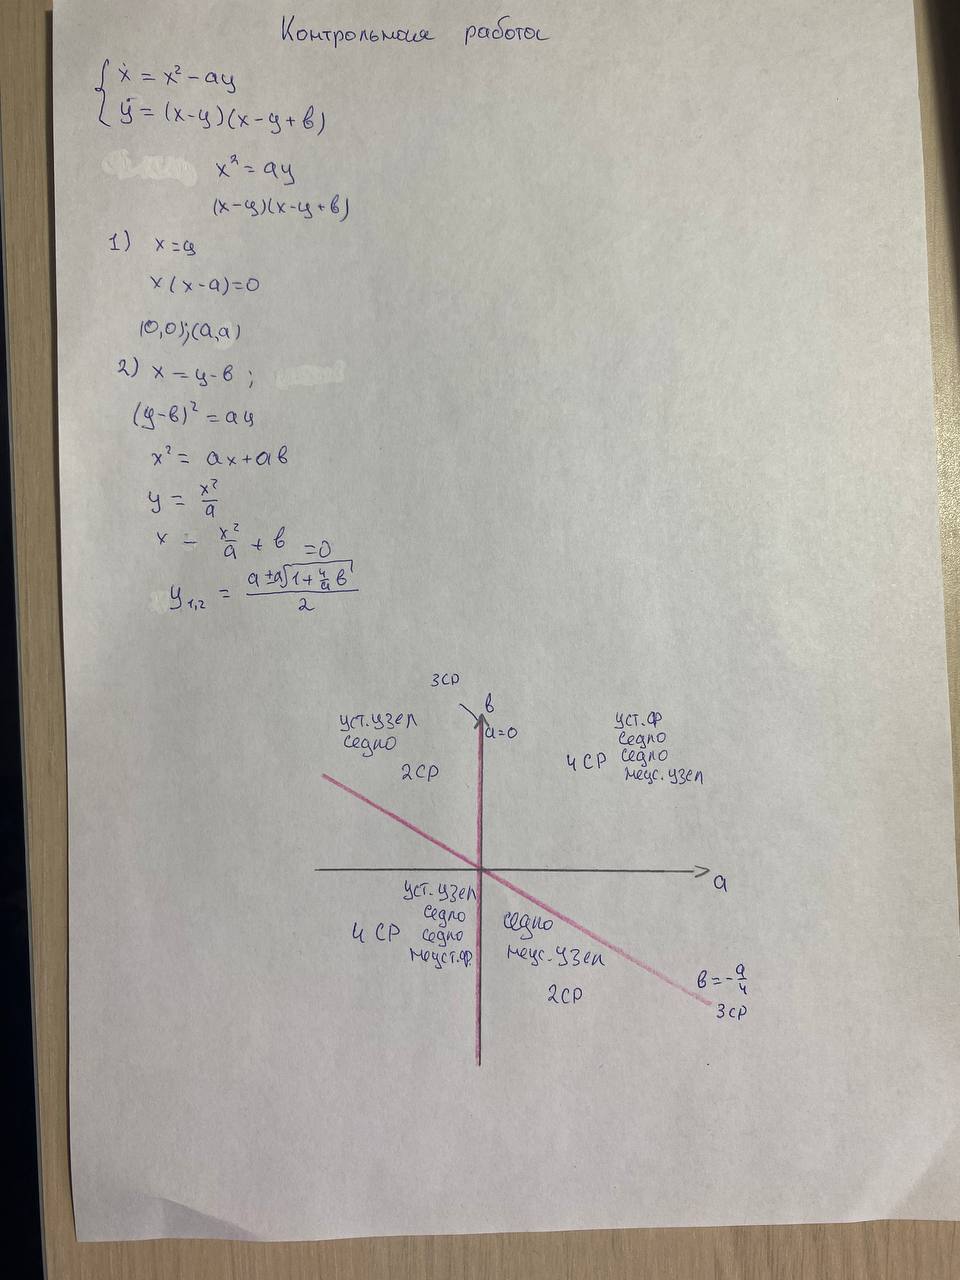 Контрольная работа
ẋ = x² - ay
ẏ = (x-y)(x-y+b)
x² = ay
(x-y)(x-y+b)
1) x=y
x(x-a)=0
(0,0);(a,a)
2) x = y-b ;
(y-b)² = ay
x² = ax+ab
y = x²/a
x - x²/a + b =0
y₁,₂ = (a±a√(1+(4/a)b))/2
3СР
b
a=0
уст.узел
седло
2СР
уст.ф
седло
4 СР седло
неус.узел
a
уст.узел
седло
4 СР седло
неуст.ф.
седло
неус.узел
2СР
b=-a/4
3СР